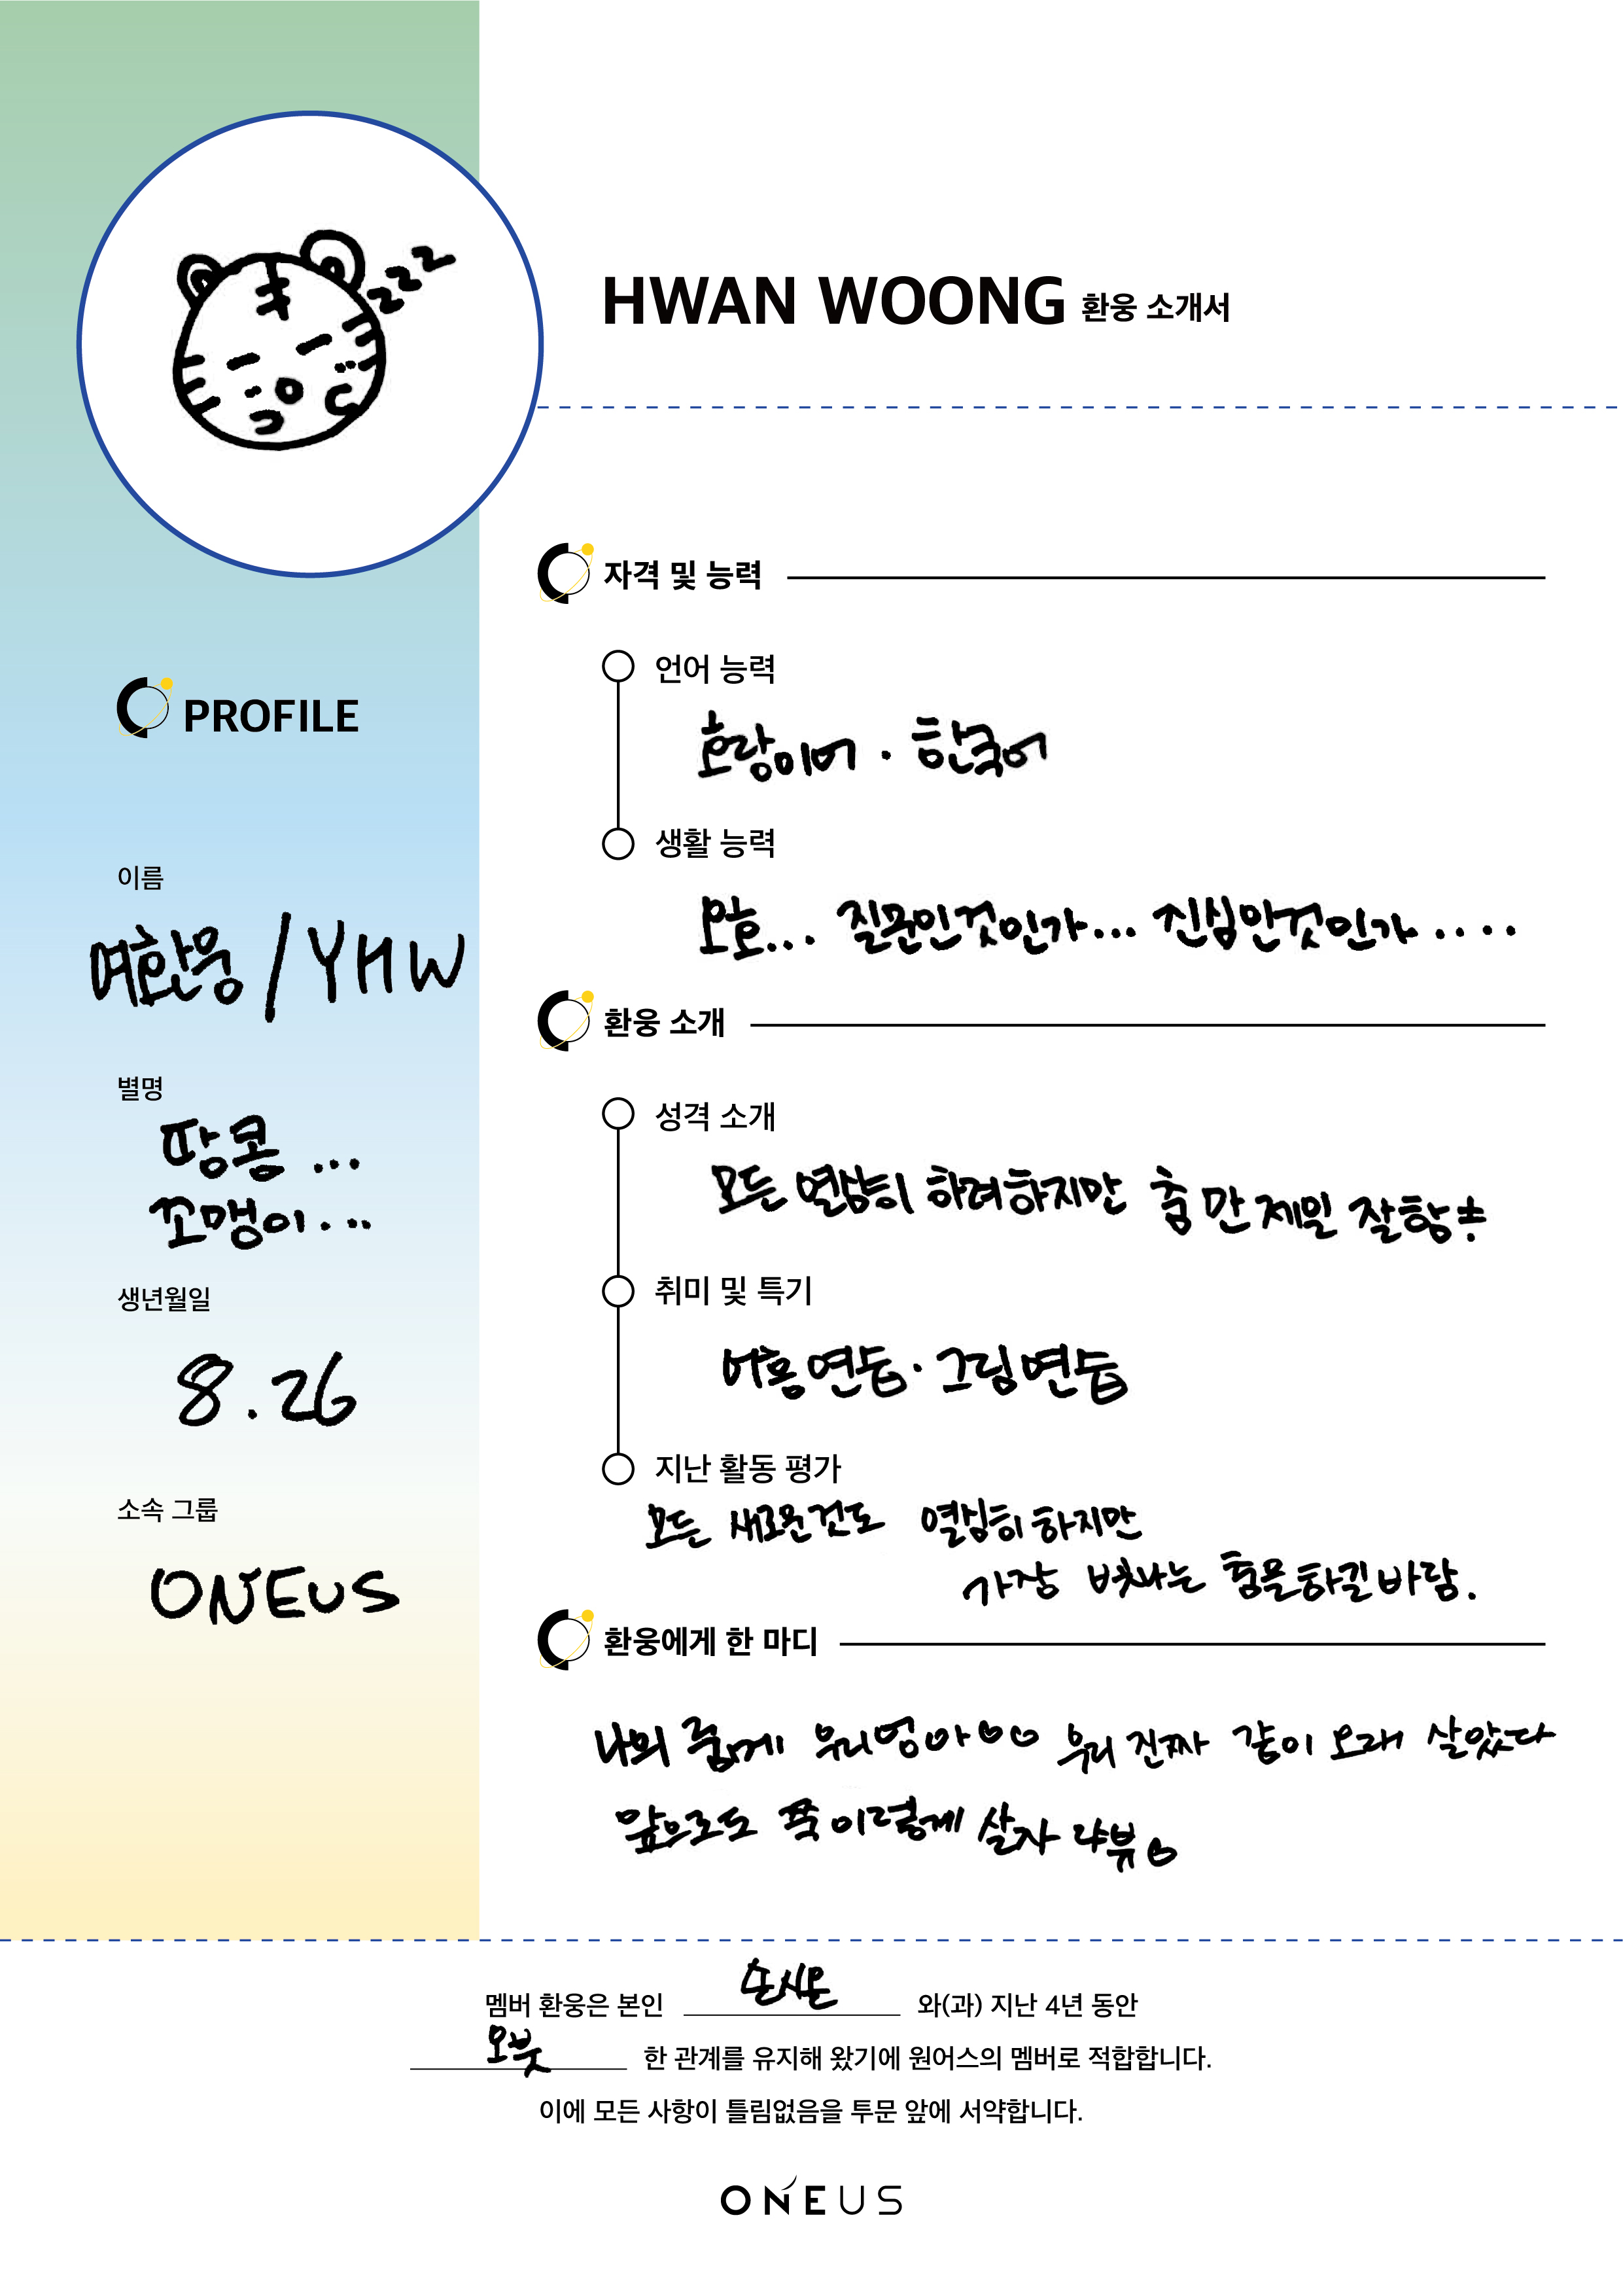 zzz
HWAN WOONG 환웅 소개서
PROFILE
이름
여환웅 / YHW
별명
땅콩 ...
꼬맹이 ...
생년월일
8.26
소속 그룹
ONEUS
자격 및 능력
언어 능력
호랑이어 · 한국어
생활 능력
오호... 질문인것인가... 진심인것인가 ....
환웅 소개
성격 소개
모든 열심히 하려하지만 춤만 제일 잘함
취미 및 특기
연습 · 그림연습
지난 활동 평가
모든 새로운것도 열심히 하지만
가장 빛나는 춤을하길바람.
환웅에게 한 마디
나의 우리 우리 진짜 같이 오래 살았다
앞으로도 쭉 이렇게 살자 랴뷰
멤버 환웅은 본인 손시온 와(과) 지난 4년 동안
오붓 한 관계를 유지해 왔기에 원어스의 멤버로 적합합니다.
이에 모든 사항이 틀림없음을 투문 앞에 서약합니다.
ONEUS